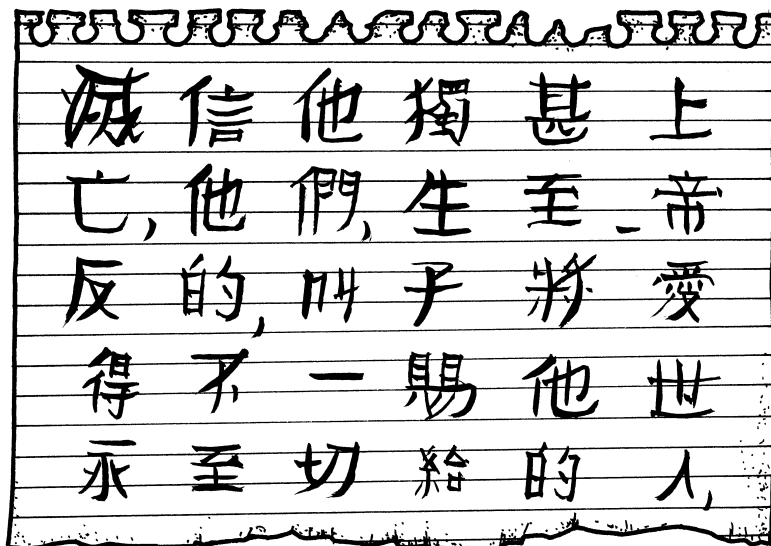 上帝愛世人,
甚至將他的
獨生子賜給
他們,叫一切
信他的,不至
滅亡,反得永